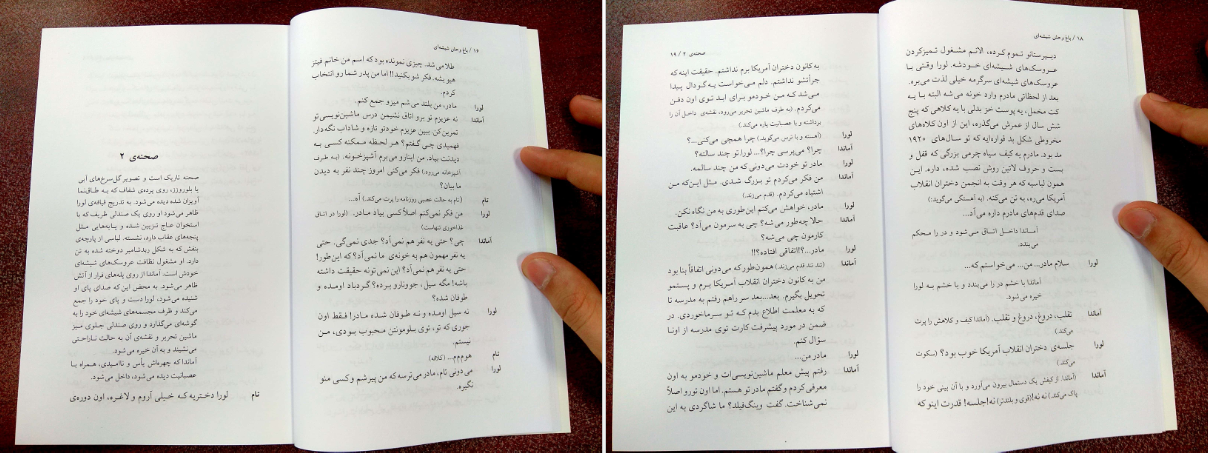 ۱۶ / باغ وحش شیشه‌ای
طلا می‌شد. چیزی نمونده بود که اسم من خانم فیتز
هیو بشه. فکر شو بکنید!! اما من پدر شما رو انتخاب
کردم.
لورا مادر، من بلند می‌شم میزو جمع کنم.
آماندا نه عزیزم تو برو اتاق نشیمن درس ماشین‌نویسی‌تو
تمرین کن. ببین عزیزم خودتو تازه و شاداب نگه‌دار.
فهمیدی چی گفتم؟ هر لحظه ممکنه کسی به
دیدنت بیاد. من اینارو می‌برم آشپزخونه. (به طرف
آشپزخانه می‌رود.) فکر می‌کنی امروز چند نفر به دیدن
ما بیان؟
تام (تام به حالت عصبی روزنامه را پرت می‌کند.) آه...
لورا من فکر نمی‌کنم اصلاً کسی بیاد مادر. (لورا در اتاق
غذاخوری تنهاست)
آماندا چی؟ حتی یه نفر هم نمی‌آد؟ جدی نمی‌گی، حتی
یه نفر مهمون هم به خونه‌ی ما نمی‌آد؟ که این‌طور!
حتی یه نفر هم نمی‌آد؟ این نمی‌تونه حقیقت داشته
باشه! مگه سیل، جوونارو برده؟ گردباد اومده و
طوفان شده؟
لورا نه سیل اومده و نه طوفان شده مادر! فقط اون
جوری که تو، توی سلومونتن محبوب بودی، من
نیستم.
تام هوم‌م‌م... (کلافه)
لورا می‌دونی تام، مادر می‌ترسه که من پیر شم و کسی منو
نگیره.
صحنه‌ی ۲
صحنه تاریک است و تصویر گل‌سرخ‌های آبی
یا بلوروزز، روی پرده‌ی شفاف که به طاق‌نما
آویزان شده دیده می‌شود. به تدریج قیافه‌ی لورا
ظاهر می‌شود او روی یک صندلی ظریف که با
استخوان عاج تزیین شده و پایه‌هایی مثل
پنجه‌های عقاب دارد، نشسته. لباسی از پارچه‌ی
بنفش که به شکل ربدشامبر دوخته شده به تن
دارد. او مشغول نظافت عروسک‌های شیشه‌ای
خودش است. آماندا از روی پله‌های فرار از آتش
ظاهر می‌شود. به محض این که صدای پای او
شنیده می‌شود، لورا دست و پای خود را جمع
می‌کند و ظرف مجسمه‌های شیشه‌ای خود را به
گوشه‌ای می‌گذارد و روی صندلی جلوی میز
ماشین تحریر و نقشه‌ی آن به حالت ناراحتی
می‌نشیند و به آن خیره می‌شود...
آماندا که چهره‌اش یأس و ناامیدی، همراه با
عصبانیت دیده می‌شود، داخل می‌شود.
تام لورا دختریه که خیلی آروم و لاغره، اون دوره‌ی
۱۸ / باغ وحش شیشه‌ای
دبیرستانو تموم کرده، الانم مشغول تمیزکردن
عروسک‌های شیشه‌ای خودشه. لورا وقتی با
عروسک‌های شیشه‌ای سرگرمه خیلی لذت می‌بره.
بعد از لحظاتی مادرم وارد خونه می‌شه البته با یه
کت مخمل، یه پوست خز بدلی با یه کلاهی که پنج
شش سال از عمرش می‌گذره، این از اون کلاه‌های
مخروطی شکل بد قواره‌ایه که تو سال‌های ۱۹۲۰
مد بود. مادرم یه کیف سیاه چرمی بزرگی که قفل و
بست و حروف لاتین روش نصب شده، داره. این
همون لباسیه که هر وقت به انجمن دختران انقلاب
آمریکا می‌ره، به تن می‌کنه. (به آهستگی می‌گوید:)
صدای قدم‌های مادرم داره می‌آد...
آماندا داخل اتاق می‌شود و در را محکم
می‌بندد.
لورا سلام مادر... من... می‌خواستم که...
آماندا با خشم در را می‌بندد و با خشم به لورا
خیره می‌شود.
آماندا تقلب، دروغ، دروغ و تقلب. (آماندا کیف و کلاهش را پرت
می‌کند.)
لورا جلسه‌ی دختران انقلاب آمریکا خوب بود؟ (سکوت
می‌کند.)
آماندا (آماندا، از کیفش یک دستمال بیرون می‌آورد و با آن بینی خود را
پاک می‌کند.) نه نه! (قوی و بلندتر) نه! جلسه! قدرت اینو که
صحنه‌ی ۲ / ۱۹
به کانون دختران آمریکا برم نداشتم. حقیقت اینه که
جرأتشو نداشتم. دلم می‌خواست یه گودال پیدا
می‌شد که من خودمو برای ابد توی اون دفن
می‌کردم. (به طرف ماشین تحریر می‌رود، نقشه‌ی داخل آن را
برداشته و با عصبانیت پاره می‌کند.)
لورا (آهسته و با ترس می‌گوید:) چرا همچی می‌کنی...؟
آماندا چرا؟ می‌پرسی چرا؟... لورا تو چند سالته؟
لورا مادر تو خودت می‌دونی که من چند سالمه.
آماندا من فکر می‌کردم تو بزرگ شدی. مثل این‌که من
اشتباه می‌کردم. (قدم می‌زند.)
لورا مادر، خواهش می‌کنم این‌طوری به من نگاه نکن.
آماندا حالا چه‌طور می‌شه؟ چی به سرمون می‌آد؟ عاقبت
کارمون چی می‌شه؟
لورا مادر...؟!! اتفاقی افتاده؟!!
آماندا (تند تند قدم می‌زند.) همون‌طور که می‌دونی اتفاقاً بنا بود
من به کانون دختران انقلاب آمریکا برم و پستمو
تحویل بگیرم. بعد... بعد سر راهم رفتم به مدرسه تا
که به معلمت اطلاع بدم که تو سرماخوردی. در
ضمن در مورد پیشرفت کارت توی مدرسه از اونا
سؤال کنم.
لورا مادر من...
آماندا رفتم پیش معلم ماشین‌نویسی‌ات و خودمو به اون
معرفی کردم و گفتم مادر تو هستم. اما اون تورو اصلاً
نمی‌شناخت. گفت وینگ‌فیلد؟ ما شاگردی به این